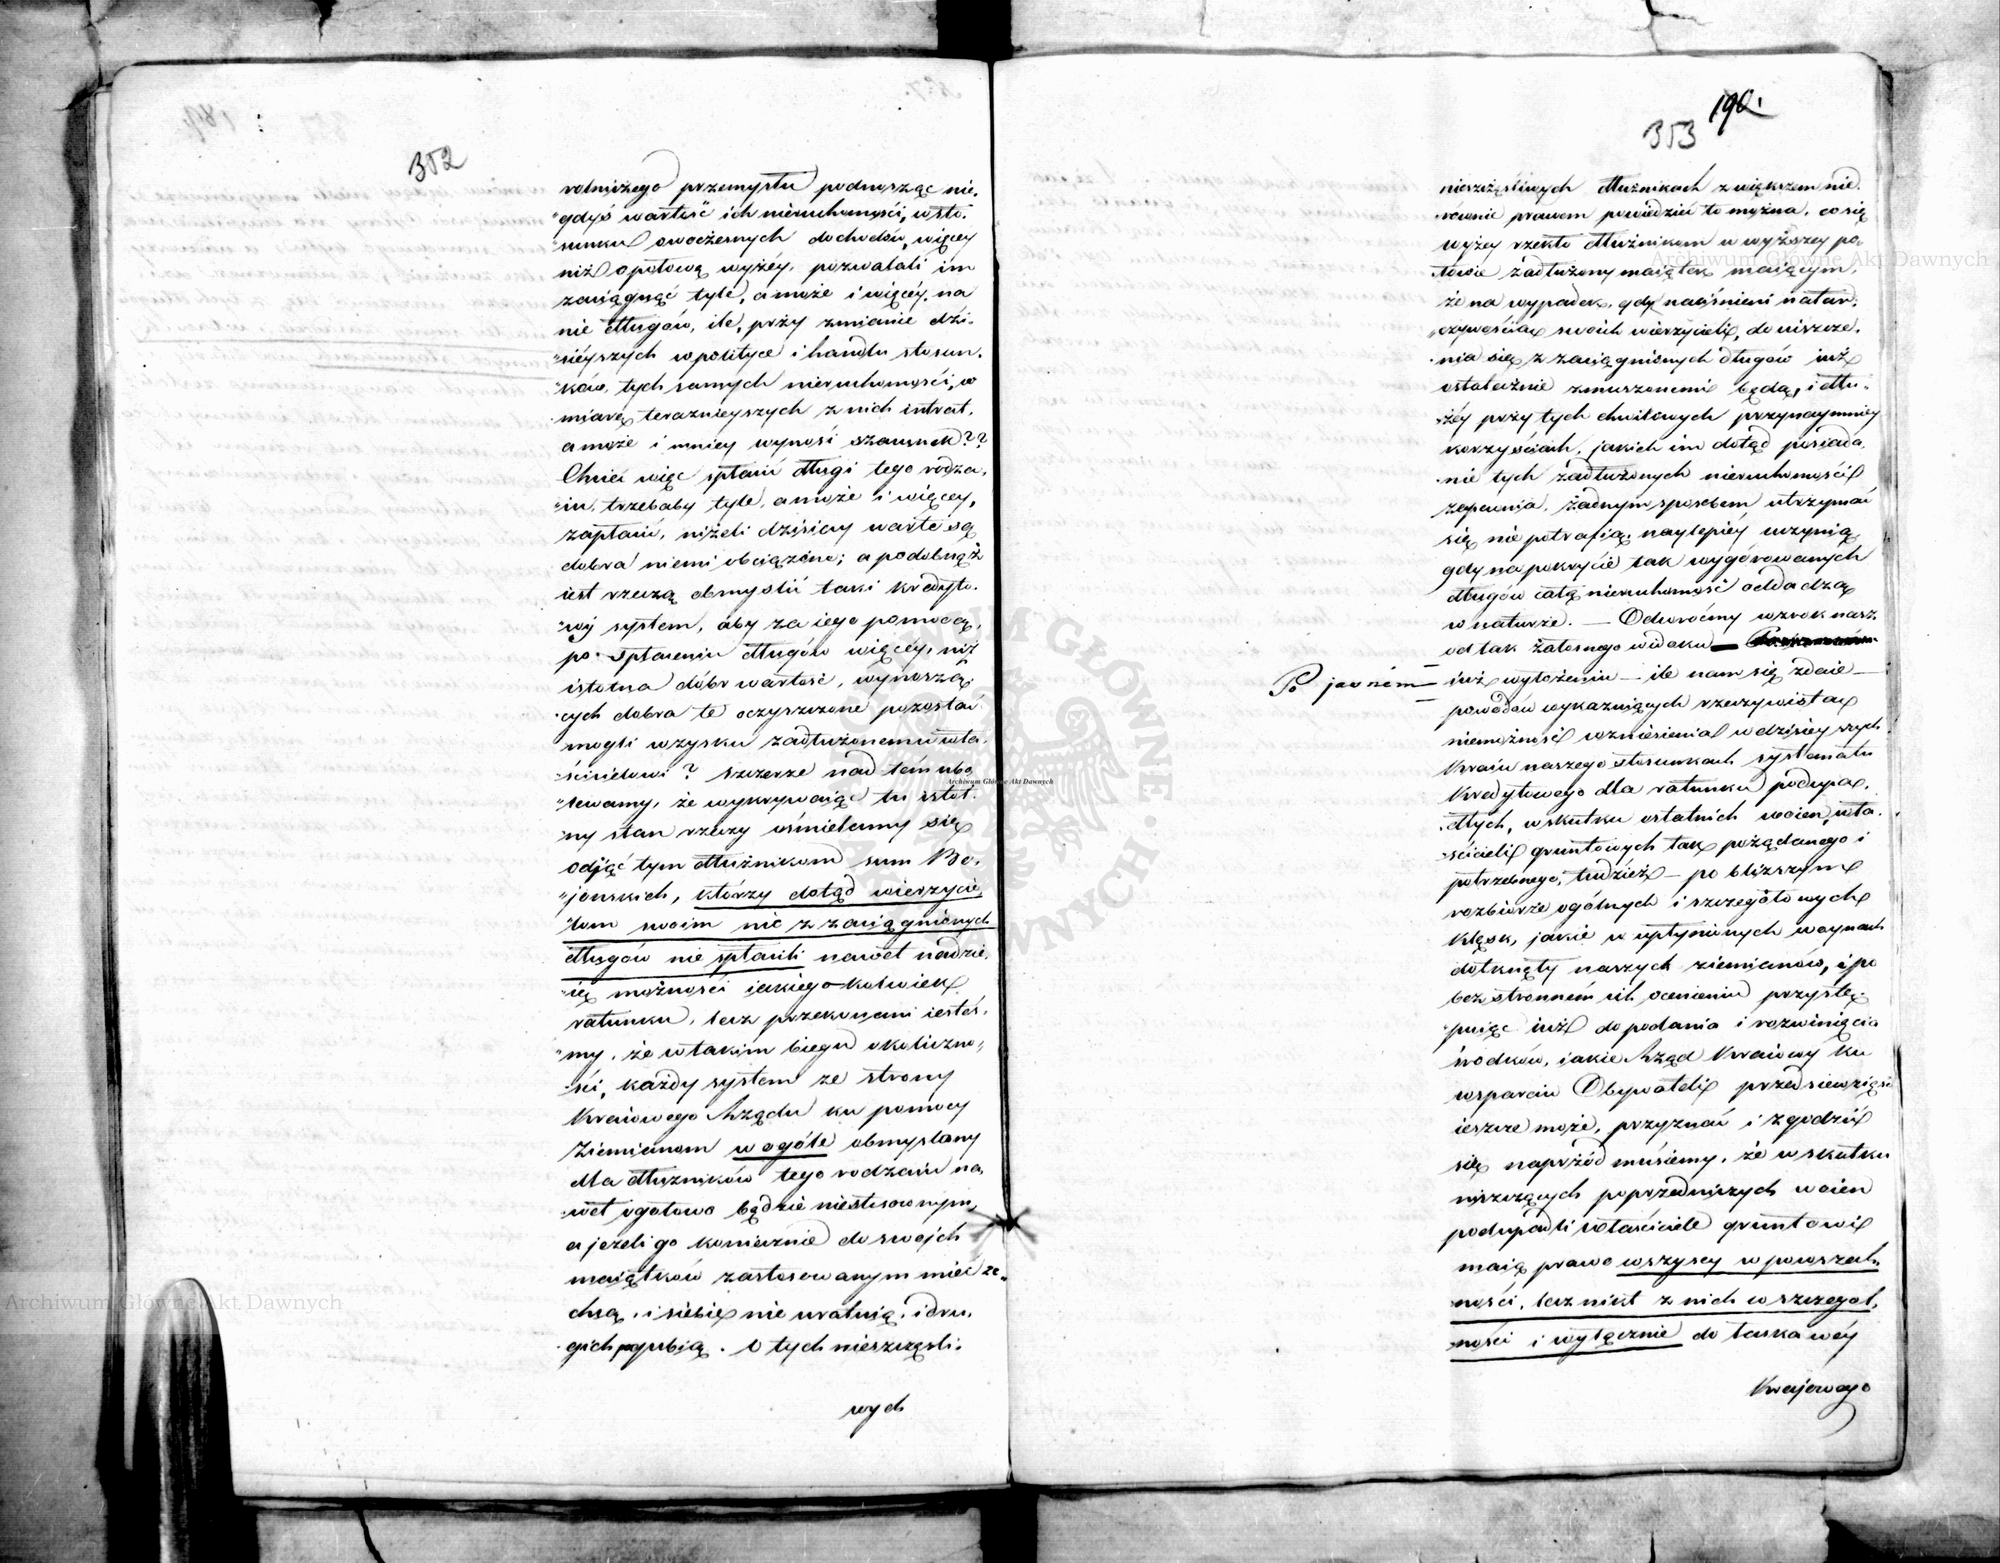 352
rolniczego przemysłu podnosząc nie-
"gdyś wartość ich nieruchomości, w sto-
"sunku owoczesnych dochodów, więcey
niż o połowę wyżéy, pozwalali im
zaciągnąć tyle, a może i więcéy, na
nie długów, ile, przy zmianie dzi-
"sieyszych w polityce i handlu stosun-
"ków, tych samych nieruchomości, w
miarę teraznieyszych z nich intrat,
a może i mniey wynosi szacunek??
Chcieć więc spłacić długi tego rodza-
"iu, trzebaby tyle, a może i więcey,
zapłacić, niżeli dzisiay warte są
dobra niemi obciążone; a podobnąż
iest rzeczą obmyślić taki kredyto-
"wy system, aby za iego pomocą,
po spłaceniu długów więcéy, niż
istotna dóbr wartość, wynoszą-
"cych dobra te oczyszczone pozostać
mogły w zysku zadłużonemu wła-
"ścicielowi? Szczerze nad tém ubo-
"lewamy, że wykrywaiąc tu istot-
"ny stan rzeczy ośmielamy się
odjąć tym dłużnikom summ Ba-
"jońskich, którzy dotąd wierzycie-
"lom swoim nic z zaciągnionych
długów nie spłacili nawet nadzie-
"ię możności iakiego-kolwiek
ratunku, lecz przekonani iesteś-
"my, że w takim biegu okoliczno-
"ści, każdy system ze strony
Kraiowego Rządu ku pomocy
Ziemianom w ogóle obmyślany
dla dłużników tego rodzaiu na-
"wet ogółowo będzie niestosownym,
a jeżeli go koniecznie do swoich
maiątków zastosowanym mieć ze-
"chcą, i siebie nie uratuią, i dru-
"gich pogubią. O tych nieszczęśli-
wych
190.
353
nieszczęśliwych dłużnikach z większem nie-
"równie prawem powiedzieć to można, co się
wyżey rzekło dłużnikom w wyższey po-
"łowie zadłużony maiątek maiącym,
że na wypadek, gdy naciśnieni natar-
"czywością swoich wierzycieli, do uiszcze-
"nia się z zaciągnionych długów iuż
ostatecznie zmuszonemi będą, i dłu-
"żéy przy tych chwilowych przynaymniéy
korzyściach, jakich im dotąd posiada-
"nie tych zadłużonych nieruchomości
zapewnia, żadnym sposobem utrzymać
się nie potrafią, naylepiey uczynią
gdy na pokrycie tak wygórowanych
długów całą nieruchomość oddadzą
w naturze. — Odwróćmy wzrok nasz
od tak żałosnego widoku —
Po jawném
iuż wyłożeniu — ile nam się zdaie —
powodów wykazuiących rzeczywistą
niemożność wzniesienia w dzisieyszych
Kraiu naszego stosunkach systematu
Kredytowego dla ratunku podupa-
"dłych, w skutku ostatnich woien, wła-
"ścicieli gruntowych tak pożądanego i
potrzebnego, tudzież — po bliższym
rozbiorze ogólnych i szczegółowych
klęsk, jakie w upłynionych woynach
dotknęły naszych ziemianów, i po
bezstronném ich ocenieniu przystę-
"puiąc iuż do podania i rozwinięcia
środków, iakie Rząd Kraiowy ku
wsparciu Obywateli przedsięwziąść
ieszcze może, przyznać i zgodzić
się naprzód musiemy, że w skutku
niszczących poprzedniczych woien
podupadli właściciele gruntowi
maią prawo wszyscy w powszech-
"ności, lecz nikt z nich w szczegól-
"ności i wyłącznie do łaskawéy
Krajowego
Archiwum Główne Akt Dawnych
Archiwum Główne Akt Dawnych
Archiwum Główne Akt Dawnych